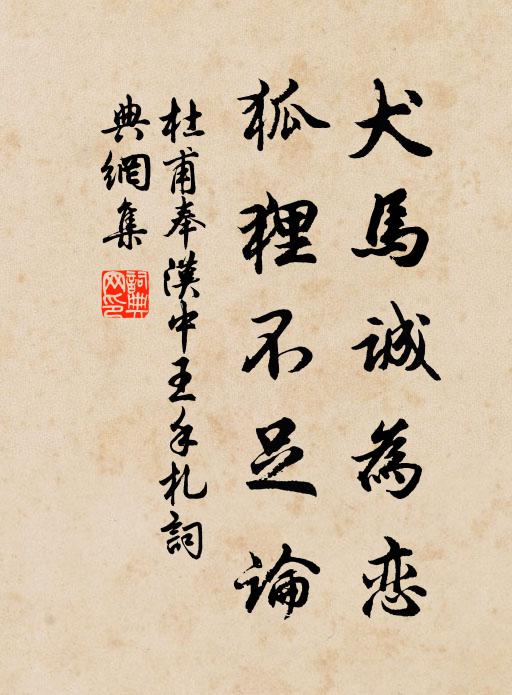 犬馬誠為恋
狐狸不足論
杜甫奉漢中王手札詞
典網集
詞典网印